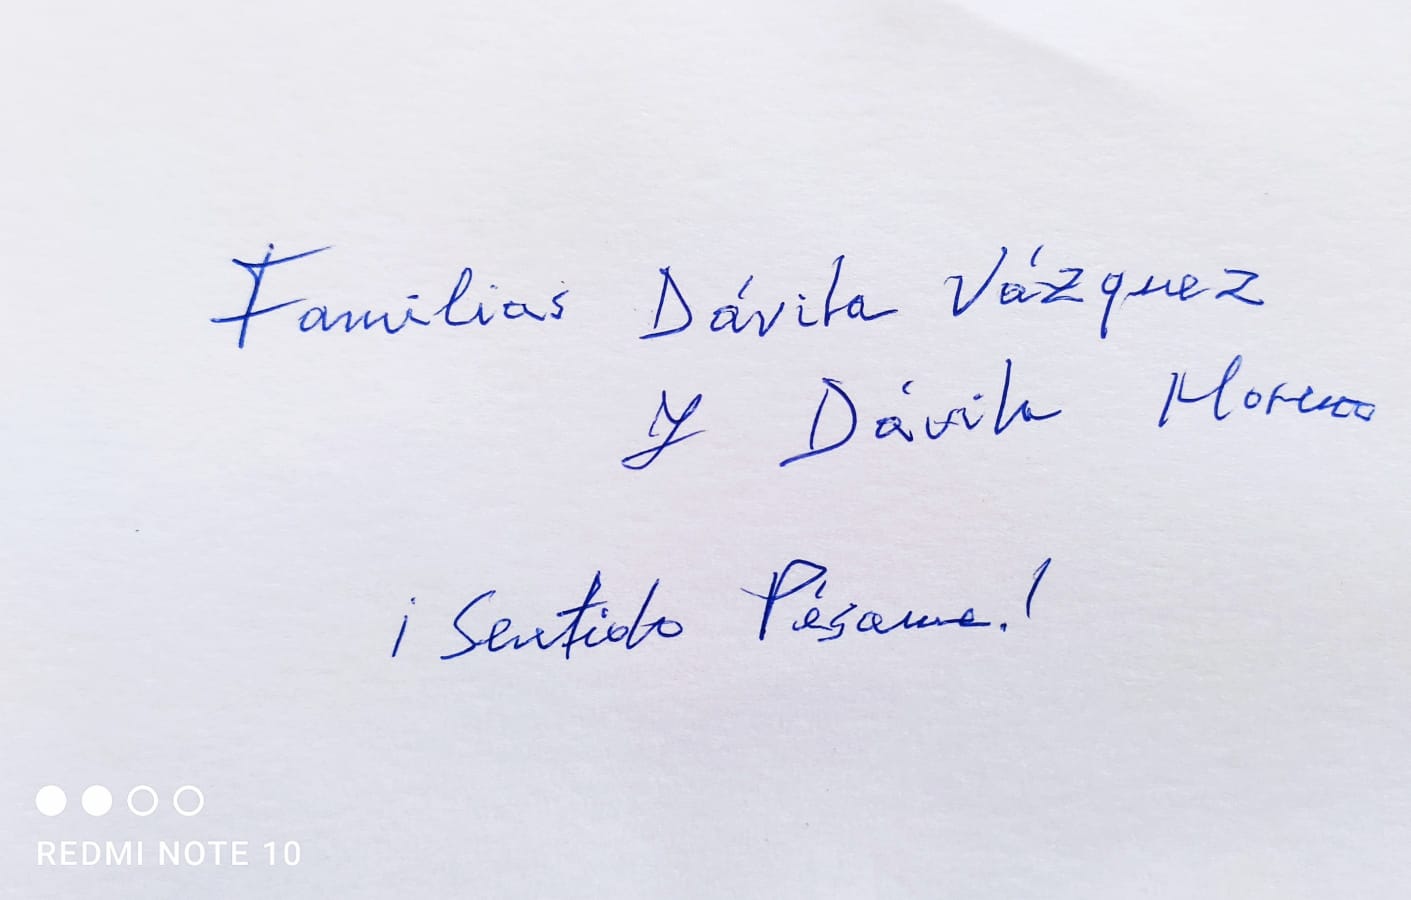 Familias Dávila Vázquez
y Dávila Moreno
¡Sentido Pésame.!
REDMI NOTE 10